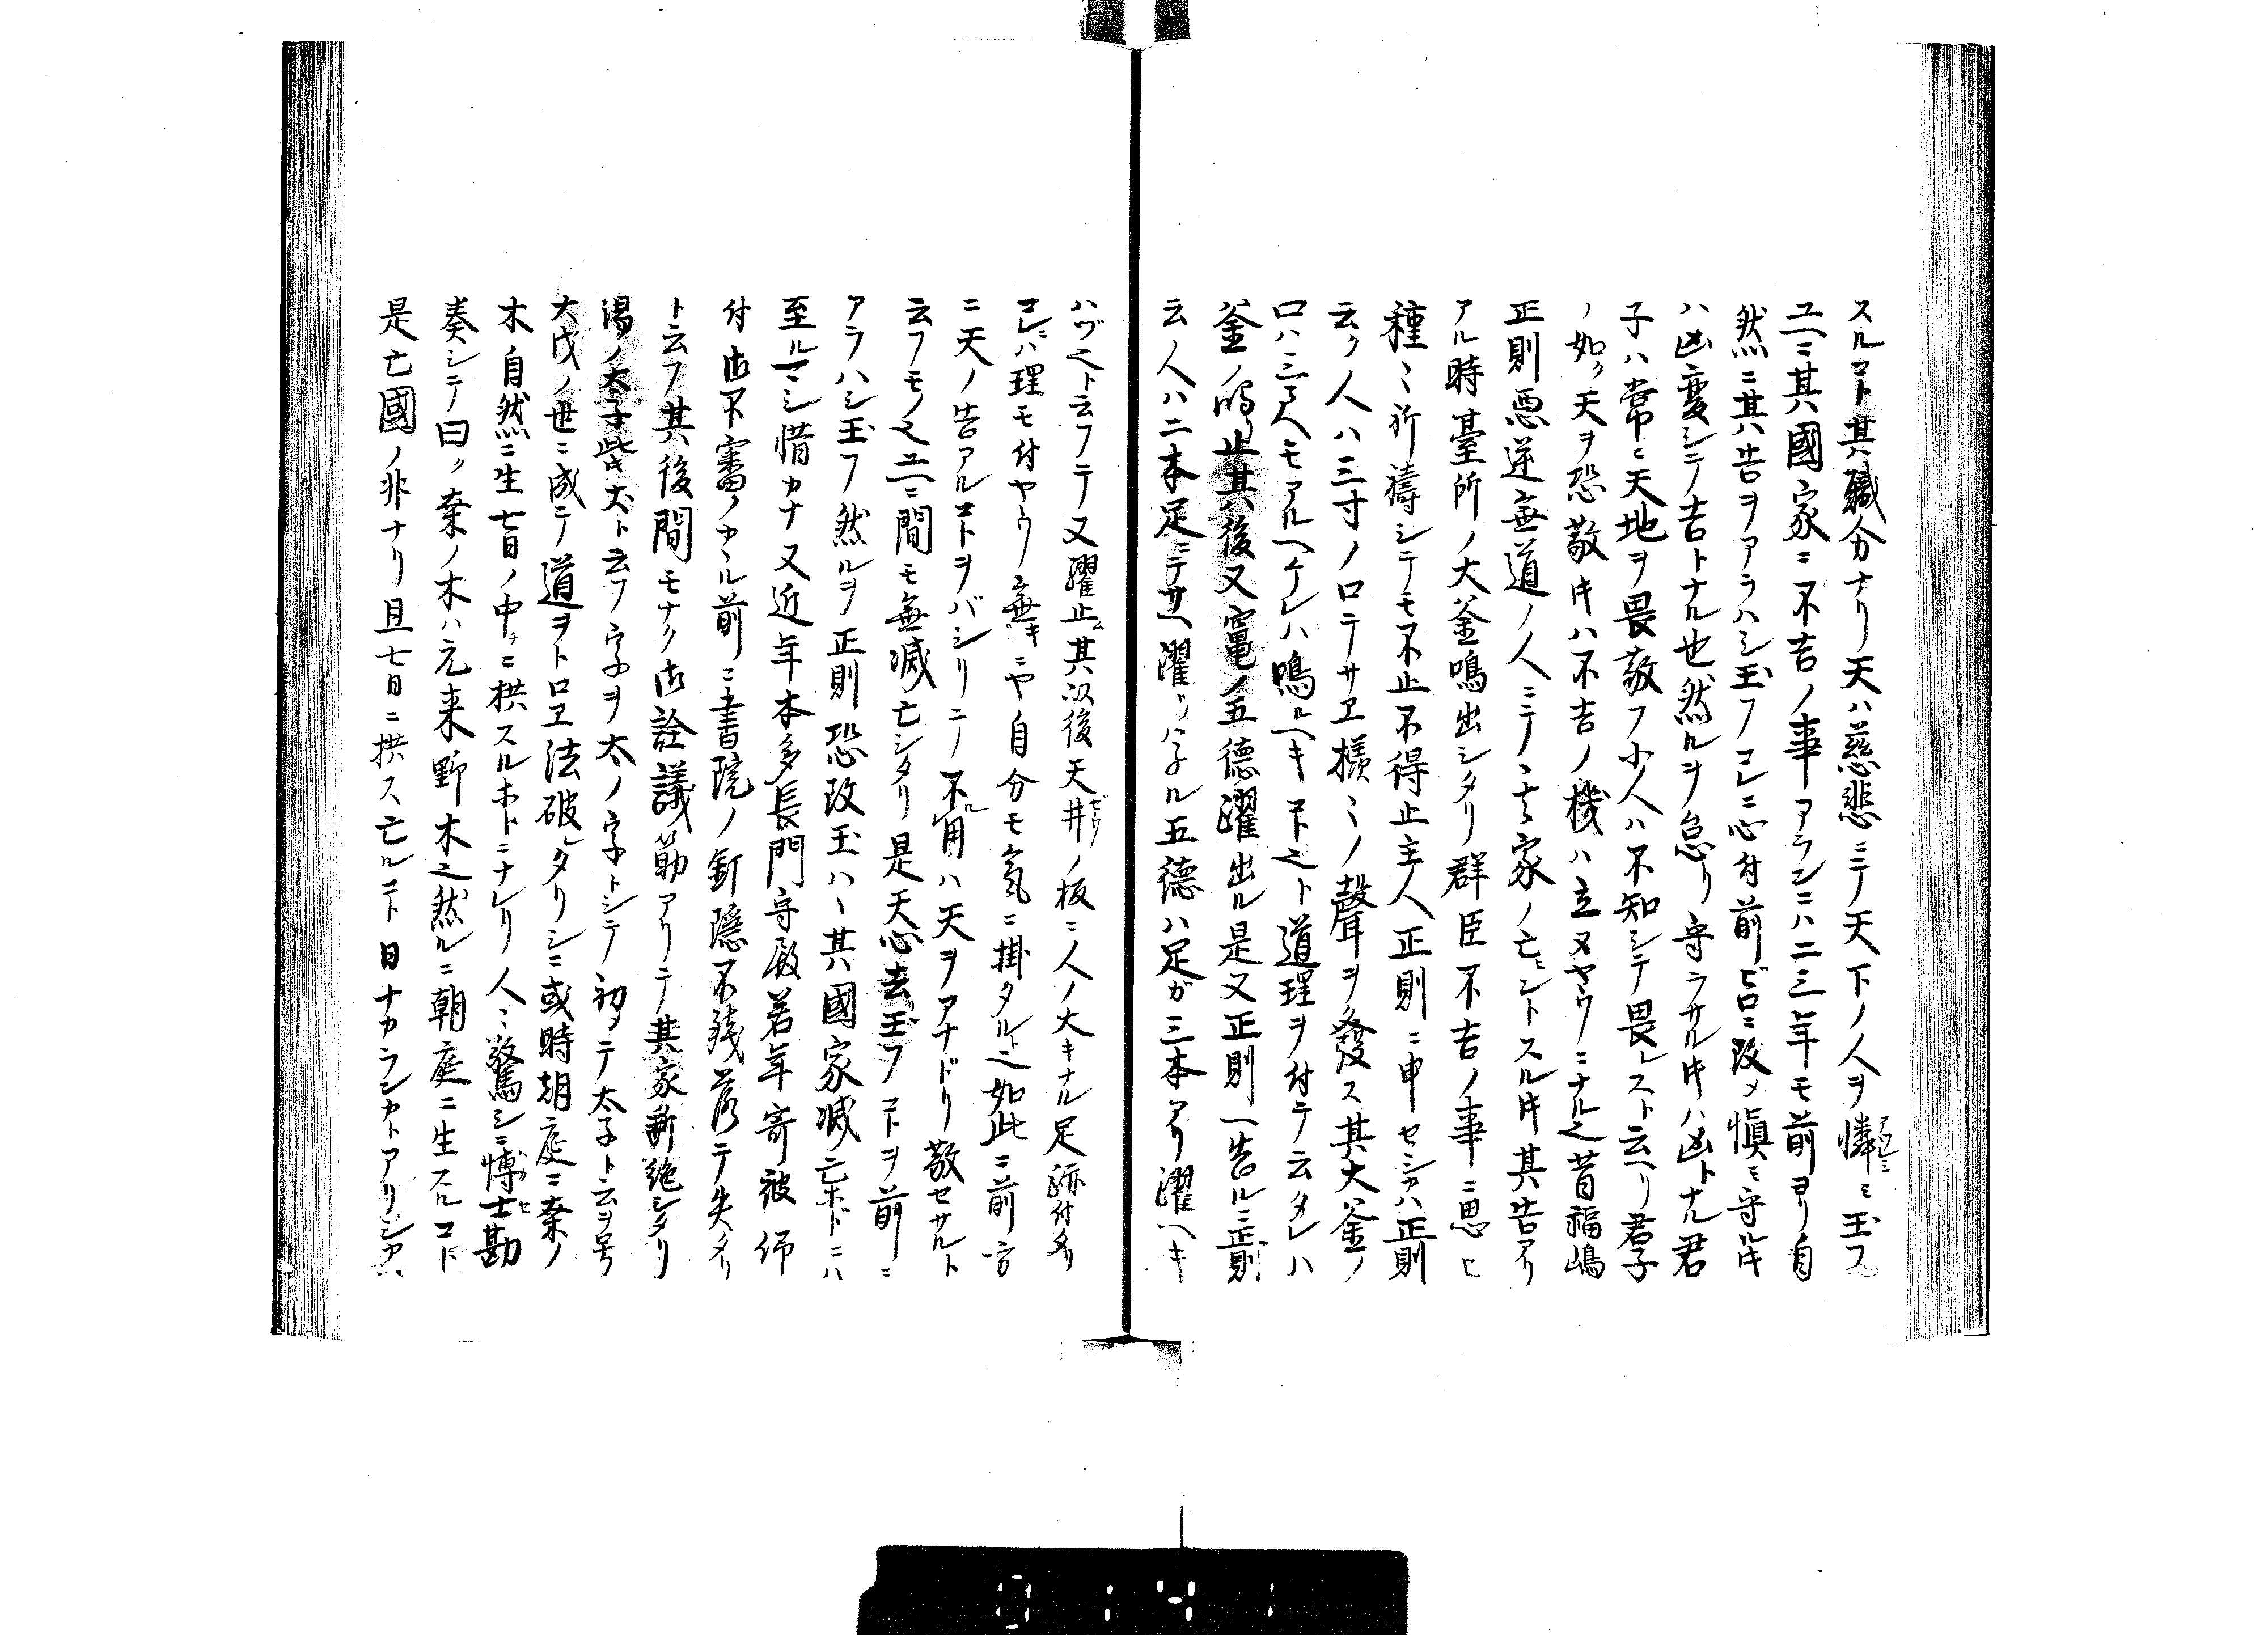 スルヿ其職分ナリ天ハ慈悲ニテ天下ノ人ヲ憐ミ玉フ
ユヘニ其國家ニ不吉ノ事アランニハ二三年モ前ヨリ自
然ニ其告ヲアラハシ玉フコレニ心付前ビロニ改メ愼ミ守ル𪜈
ハ凶變シテ吉トナル也然ルヲ怠リ守ラサル𪜈ハ凶トナル君
子ハ常ニ天地ヲ畏敬フ少人ハ不知シテ畏レスト云ヘリ君子
ノ如ク天ヲ恐敬𪜈ハ不吉ノ機ハ立ヌヤウニナル也昔福嶋
正則悪逆無道ノ人ニテ家ノ亡ントスル𪜈其告アリ
アル時臺所ノ大釜鳴出シタリ群臣不吉ノ事ニ思ヒ
種々祈濤シテモ不止不得止主人正則ニ申セシカハ正則
云ク人ハ三寸ノ口テサヱ様々ノ聲ヲ發ス其大釜ノ
口ハ三尺モアルヘケレハ鳴ルヘキヿ也ト道理ヲ付テ云タレハ
釜ノ鳴止其後又竃ノ五德躍出ル是又正則ヘ告ルニ正則
云人ハ二本足ニテサヘ躍リハ子ル五德ハ足ガ三本アリ躍ヘキ
ハヅ也ト云フテ又躍止ム其以後天井ノ板ニ人ノ大キナル足跡付タリ
コレニハ理モ付ヤウノ無キニヤ自分モ氣ニ掛タル也如此ニ前方
ニ天ノ告アルヿヲバシリニノ不用ハ天ヲアナドリ敬セサルト
云フモノ也ユヘニ間モ無滅亡シタリ是天心去玉フヿヲ前ニ
アラハシ玉フ然ルヲ正則恐改玉ハヽ其國家滅亡ホドニハ
至ルマシ惜カナ又近年本多長門守殿若年寄被仰
付御不審ノカヽル前ニ書院ノ釘隠不残落テ失タリ
ト云フ其後間モナク御詮議筋アリテ其家断絶シタリ
湯ノ太子紫大ト云フ字ヲ太ノ字トシテ初メテ太子ト云フ号
大戊ノ世ニ成テ道ヲトロヱ法破レタリシニ或時朝庭ニ桒ノ
木自然ニ生七日ノ中チニ拱スルホトニナレリ人々驚シニ博士勘
奏シテ曰ク桒ノ木ハ元来野木也然ルニ朝庭ニ生スルコト
是亡國ノ非ナリ且七日ニ拱ス亡ルコト日ナカランカトアリシカハ